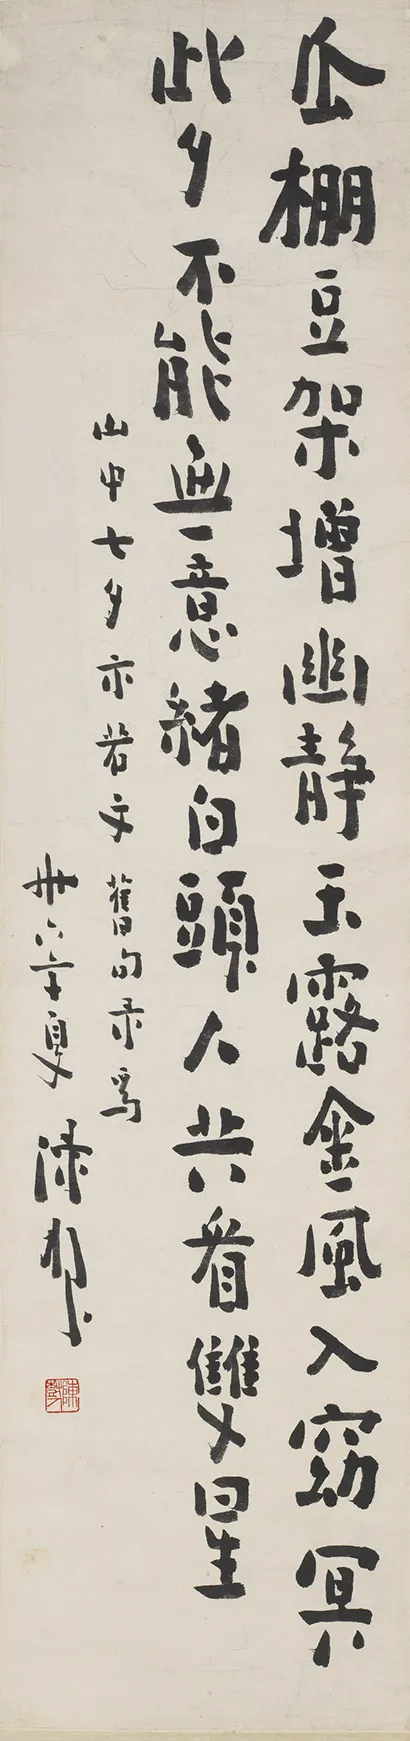 瓜棚豆架增幽静玉露金風入窈冥
此夕不能無意緒白頭人共看雙星
山中七夕示若文舊句录
卅六年夏